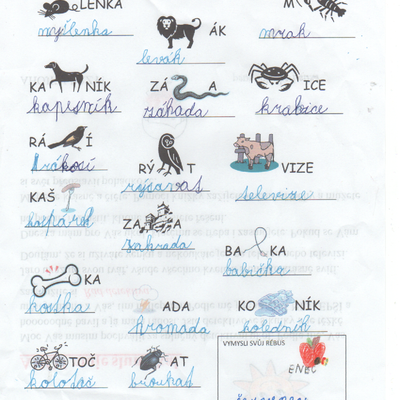 LENKA
M
ÁK
myšlenka
levák
mrak
KA NÍK
ZÁ A
ICE
kapesník
záhada
krabice
RÁ Í
RÝ T
VIZE
rýsovat
televize
KAŠ
ZA A
zahrada
BA KA
babička
KA
ADA
KO NÍK
kostka
hromada
koledník
TOČ
AT
VYMYSLI SVŮJ RÉBUS
kolotoč
bouchat